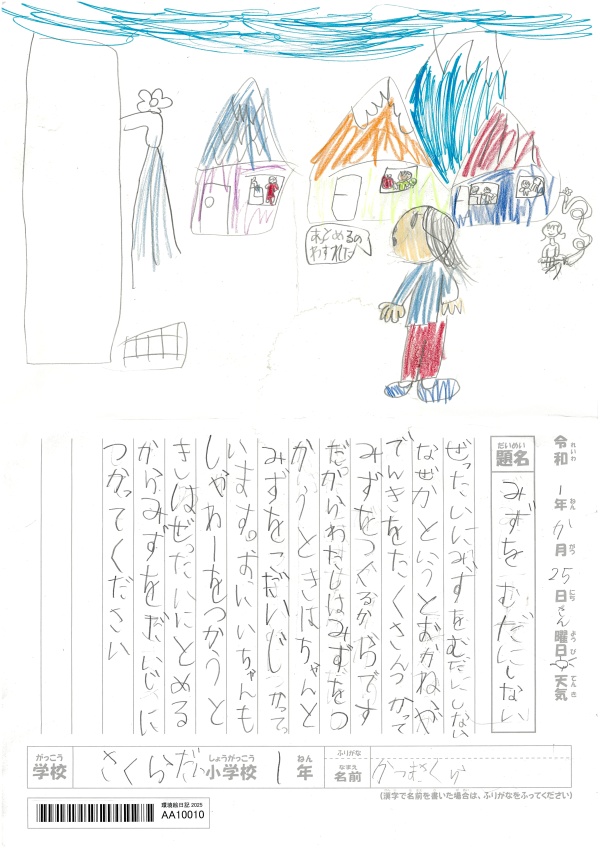 あとめるの
わすれた
令和1年か月25日さん曜日天気
れいわ ねん がつ にち ようび てんき
だいめい
題名
みずをむだにしない
ぜったいにみずをむだにしない
なぜかというとおかねや
でんきをたくさんつかって
みずをつくるからです
だからわたしはみずをつ
かうときはちゃんと
みずをこだいじにつかって
います。おにいいちゃんも
しゃわーをつかうと
きはぜったいにとめる
からみずをだいじに
つかってください
がっこう
学校
さくらだ
しょうがっこう
小学校
1
ねん
年
ふりがな
なまえ
名前
(漢字で名前を書いた場合は、ふりがなをふってください)
環境絵日記 2025
AA10010